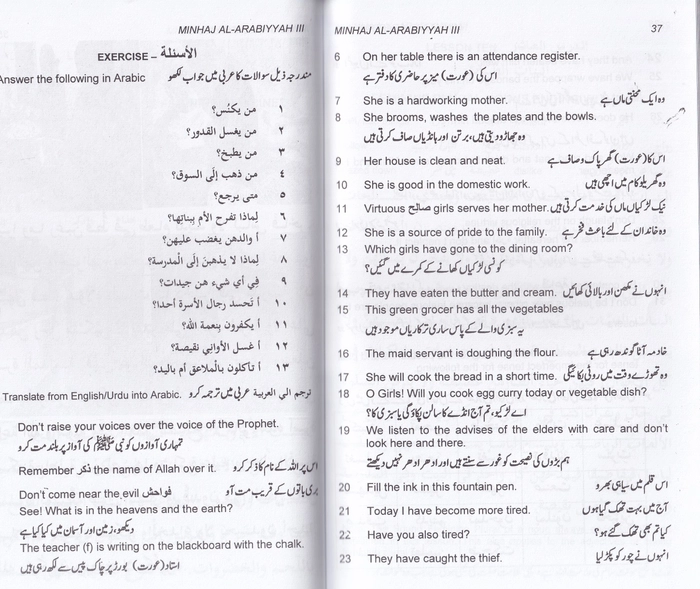 MINHAJ AL-ARABIYYAH III
EXERCISE – الأسئلة
Answer the following in Arabic مندرجہ ذیل سوالات کا عربی میں جواب لکھو
١ من يكنُس؟
٢ من يغسل القدور؟
٣ من يطبخ؟
٤ من ذهب إلَى السوق؟
٥ متى يرجع؟
٦ لِماذا تفرح الأم ببناتِها؟
٧ أ والدهن يغضب عليهن؟
٨ لِماذا لا يذهبْنَ إلَى الْمدرسة؟
٩ فِي أي شيء هن جيدات؟
١٠ أ تحسد رجال الأسرة أحدا؟
١١ أ يكفرون بنعمة الله؟
١٢ أ غسل الأوانِي نقيصة؟
١٣ أ تأكلون بالْملاعق أم باليد؟
Translate from English/Urdu into Arabic. ترجم الى العربية عربی میں ترجمہ کرو
Don't raise your voices over the voice of the Prophet.
تمہاری آوازوں کو نبی ﷺ کی آواز پر بلند مت کرو
Remember ذكر the name of Allah over it. اس پر اللہ کے نام کا ذکر کرو
Don't come near the evil فواحش بری باتوں کے قریب مت آو
See! What is in the heavens and the earth?
دیکھو، زمین اور آسمان میں کیا کیا ہے
The teacher (f) is writing on the blackboard with the chalk.
استاد (عورت) بورڈ پر چاک پیس سے لکھ رہی ہیں
MINHAJ AL-ARABIYYAH III 37
6 On her table there is an attendance register.
اس کی (عورت) میز پر حاضری کا دفتر ہے
7 She is a hardworking mother. وہ ایک محنتی ماں ہے
8 She brooms, washes the plates and the bowls.
وہ جھاڑو دیتی ہیں، برتن اور ہانڈیاں صاف کرتی ہیں
9 Her house is clean and neat. اس کا (عورت) گھر پاک وصاف ہے
10 She is good in the domestic work. وہ گھریلو کام میں اچھی ہیں
11 Virtuous صالح girls serves her mother. نیک لڑکیاں ماں کی خدمت کرتی ہیں
12 She is a source of pride to the family. وہ خاندان کے لئے باعث فخر ہے
13 Which girls have gone to the dining room?
کونسی لڑکیاں کھانے کے کمرے میں گئیں؟
14 They have eaten the butter and cream. انہوں نے مکھن اور بالائی کھائیں
15 This green grocer has all the vegetables
یہ سبزی والے کے پاس ساری ترکاریاں موجود ہیں
16 The maid servant is doughing the flour. خادمہ آٹا گوندھ رہی ہے
17 She will cook the bread in a short time. وہ تھوڑے وقت میں روٹی پکائیگی
18 O Girls! Will you cook egg curry today or vegetable dish?
اے لڑکیو، تم آج انڈے کا سالن پکاؤگی یا سبزی کا؟
19 We listen to the advises of the elders with care and don't
look here and there.
ہم بڑوں کی نصیحت کو غور سے سنتے ہیں اور ادھر ادھر نہیں دیکھتے
20 Fill the ink in this fountain pen. اس قلم میں سیاہی بھرو
21 Today I have become more tired. آج میں بہت تھک گیا ہوں
22 Have you also tired? کیا تم بھی تھک گئے ہو؟
23 They have caught the thief. انہوں نے چور کو پکڑ لیا